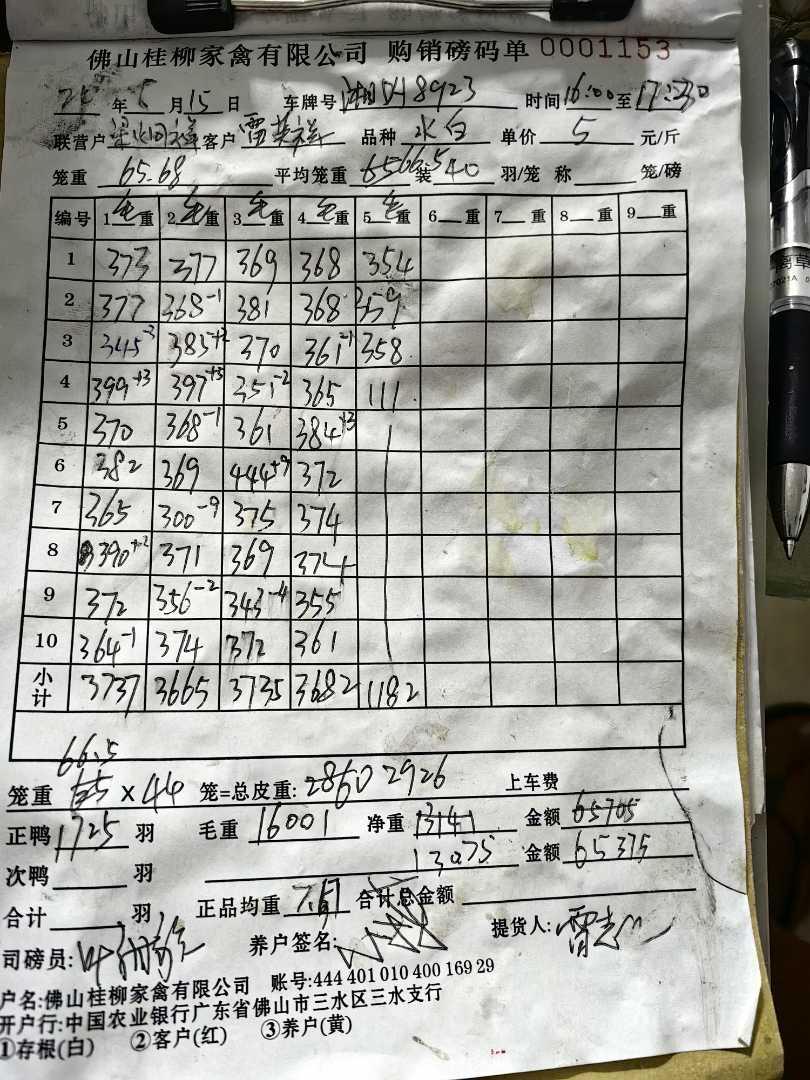 佛山桂柳家禽有限公司 购销磅码单 0001153
年5月15日 车牌号 8923 时间16:00至17:30
联营户 客户 品种 水白 单价 5 元/斤
笼重 65.68 平均笼重 66.5 装 40 羽/笼 称 笼/磅
编号 1毛重 2毛重 3毛重 4毛重 5毛重 6重 7重 8重 9重
1 373 377 369 368 354
2 377 368-1 381 368 359
3 345-3 385+2 370 361-1 358
4 399+3 397+5 351-2 365 111
5 370 368-1 361 384+3
6 382 369 444+9 372
7 365 300-9 375 374
8 390+2 371 369 374
9 372 356-2 343-4 355
10 364-1 374 372 361
小计 3737 3665 3735 3682 1182
66.5
笼重 65 × 44 笼=总皮重: 2860 2926 上车费
正鸭 1725 羽 毛重 16001 净重 13141 金额 65705
次鸭 羽 13075 金额 65375
合计 羽, 正品均重 合计总金额
司磅员: 养户签名: 提货人:
户名:佛山桂柳家禽有限公司 账号:444 401 010 400 169 29
开户行:中国农业银行广东省佛山市三水区三水支行
①存根(白) ②客户(红) ③养户(黄)